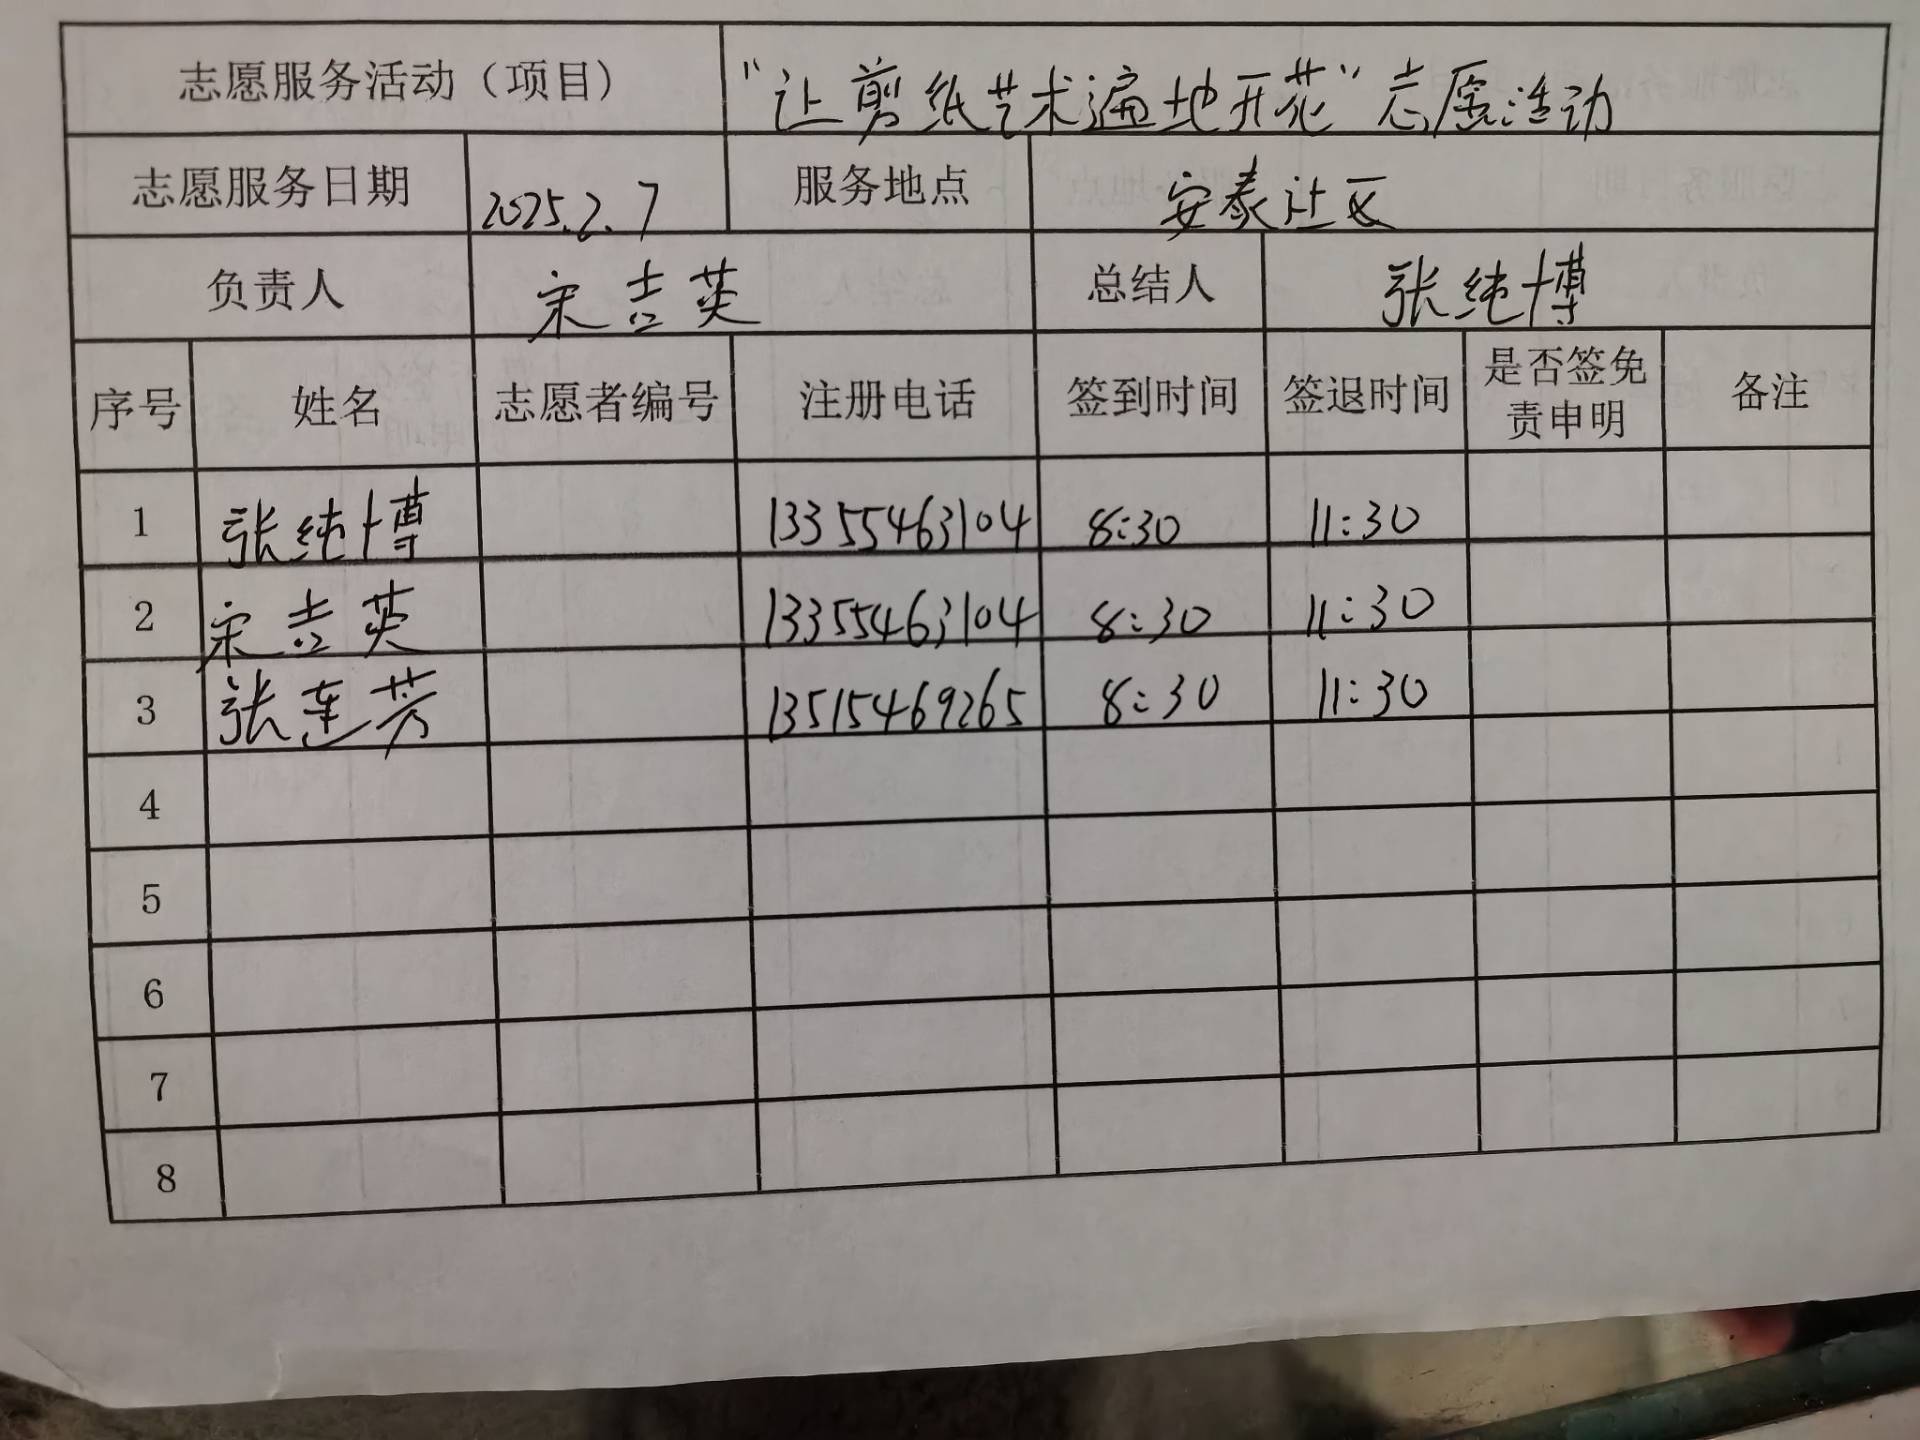 志愿服务活动（项目） “让剪纸艺术遍地开花”志愿活动
志愿服务日期 2025.2.7 服务地点 安泰社区
负责人 宋吉英 总结人 张纯博
序号 姓名 志愿者编号 注册电话 签到时间 签退时间 是否签免责申明 备注
1 张纯博 13355463104 8:30 11:30
2 宋吉英 13355463104 8:30 11:30
3 张连芳 13515469265 8:30 11:30
4
5
6
7
8